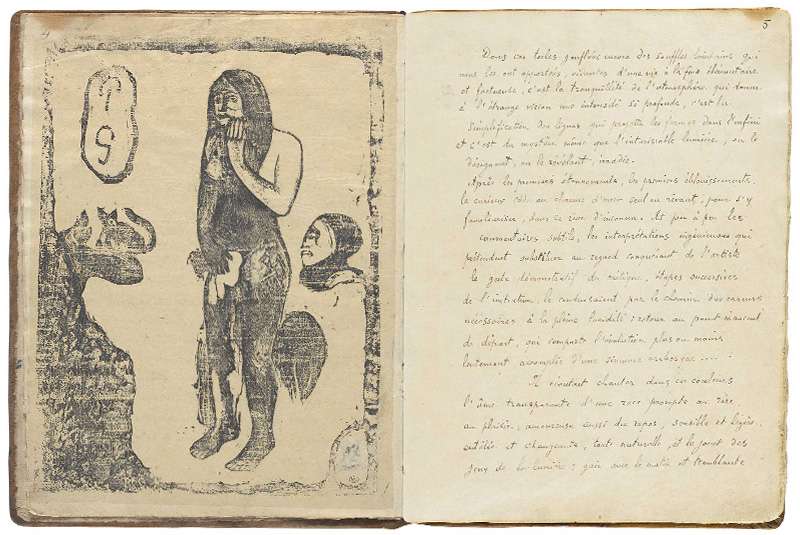 5
Dans ces toiles gonflées encore des souffles lointains qui
nous les ont apportés, vivantes d'une vie à la fois élémentaire
et fastueuse, c'est la tranquillité de l'atmosphère qui donne
à l'étrange vision une intensité si profonde, c'est la
simplification des lignes qui projette les formes dans l'infini
et c'est du mystère même que l'intarissable lumière, en le
désignant, en le révélant, irradie.
Après les premiers étonnements, les premiers éblouissements,
le curieux cède au charme d'errer seul en rêvant, pour s'y
familiariser, dans ce rêve d'inconnu. Et peu à peu les
commentaires subtils, les interprétations ingénieuses qui
prétendent substituer au regard conquérant de l'artiste
le geste démonstratif du critique, étapes successives
de l'instruction, le conduiraient par le chemin des erreurs
nécessaires à la pleine lucidité : retour au point innocent
de départ, qui comporte l'évolution plus ou moins
lentement accomplie d'une sincère
Il écoutait chanter dans ces couleurs
l'âme transparente d'une race prompte au rire
au plaisir, amoureuse aussi du repos, sensible et légère,
subtile et changeante, toute naturelle, et le jouet des
jeux de la lumière : gaie avec le matin et tremblante